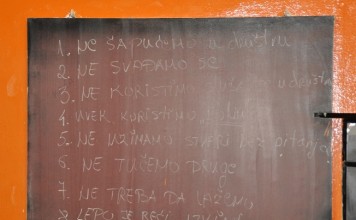 1. NE ŠAPUĆEMO u društvu
2. NE SVAĐAMO SE
3. NE KORISTIMO
4. UVEK KORISTIMO
5. NE UZIMAMO STVARI BEZ pitanja
6. NE TUČEMO DRUGE
7. NE TREBA DA LAŽEMO
8. LEPO JE REĆI